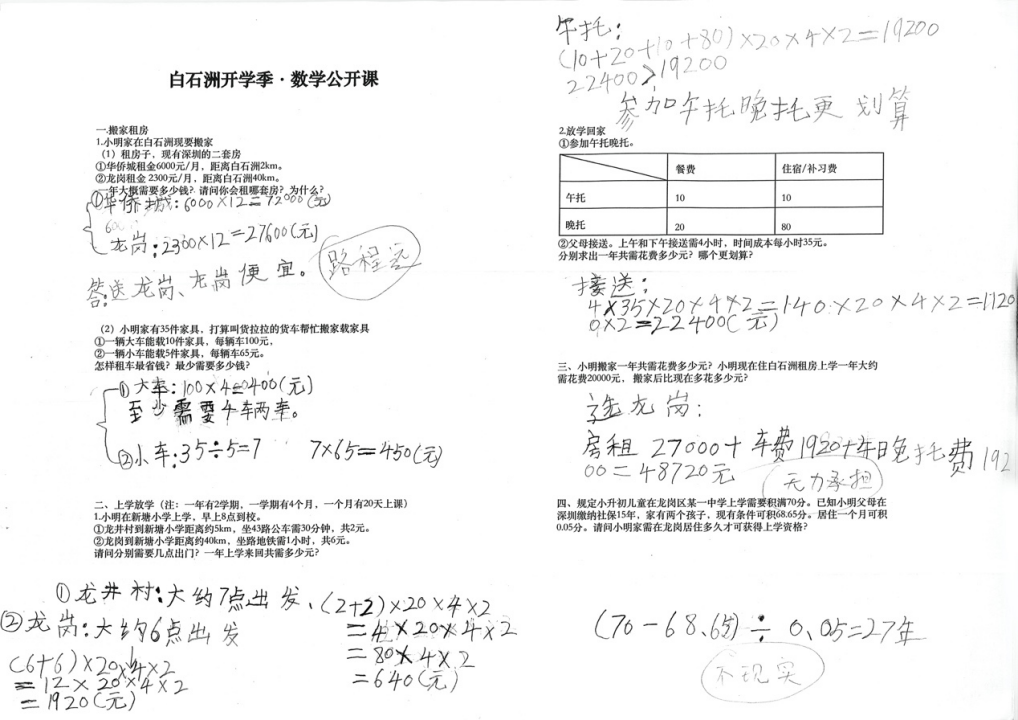 白石洲开学季·数学公开课
一.搬家租房
1.小明家在白石洲现要搬家
（1）租房子，现有深圳的二套房
①华侨城租金6000元/月，距离白石洲2km。
②龙岗租金 2300元/月，距离白石洲40km。
一年大概需要多少钱？请问你会租哪套房？为什么？
①华侨城：6000×12=72000(元)
龙岗：2300×12=27600(元)
路程远
答：选龙岗、龙岗便宜。
（2）小明家有35件家具，打算叫货拉拉的货车帮忙搬家载家具
①一辆大车能载10件家具，每辆车100元，
②一辆小车能载5件家具，每辆车65元。
怎样租车最省钱？最少需要多少钱？
①大车：100×4=0400(元)
至少需要4车两车。
②小车：35÷5=7 7×65=450(元)
二、上学放学（注：一年有2学期，一学期有4个月，一个月有20天上课）
1.小明在新塘小学上学，早上8点到校。
①龙井村到新塘小学距离约5km，坐43路公车需30分钟，共2元。
②龙岗到新塘小学距离约40km，坐路地铁需1小时，共6元。
请问分别需要几点出门？一年上学来回共需多少元？
①龙井村：大约7点出发、(2+2)×20×4×2
=4×20×4×2
=80×4×2
=640(元)
②龙岗：大约6点出发
(6+6)×20×4×2
=12×20×4×2
=1920(元)
午托：
(10+20+10+80)×20×4×2=19200
22400>19200
参加午托晚托更划算
2.放学回家
①参加午托晚托。
餐费 住宿/补习费
午托 10 10
晚托 20 80
②父母接送。上午和下午接送需4小时，时间成本每小时35元。
分别求出一年共需花费多少元？哪个更划算？
接送：
4×35×20×4×2=140×20×4×2=1120
0×2=22400(元)
三、小明搬家一年共需花费多少元？小明现在住白石洲租房上学一年大约
需花费20000元，搬家后比现在多花多少元？
选龙岗：
房租 27000+车费1920+午晚托费192
00=48720元
无力承担
四、规定小升初儿童在龙岗区某一中学上学需要积满70分。已知小明父母在
深圳缴纳社保15年，家有两个孩子，现有条件可积68.65分。居住一个月可积
0.05分。请问小明家需在龙岗居住多久才可获得上学资格？
(70-68.65)÷0.05=27年
不现实